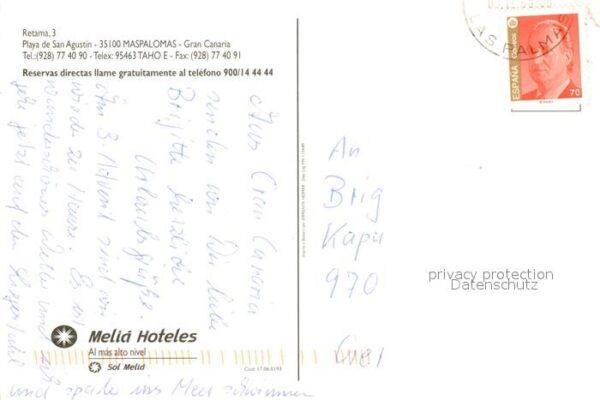 Retama, 3
Playa de San Agustin - 35100 MASPALOMAS - Gran Canaria
Tel.:(928) 77 40 90 - Telex: 95463 TAHO E - Fax: (928) 77 40 91
Reservas directas llame gratuitamente al teléfono 900/14 44 44
Aus Gran Canaria
senden wir Dir liebe
Brigitte herzliche
Urlaubsgrüße.
Am 3. Advent sind wir
wieder zu Hause. Es ist
wunderschönes Wetter und
jetzt auf den Liegestuhl
und später ins Meer schwimmen
Meliá Hoteles
Al más alto nivel
Sol Meliá
An
Brig
Kapu
970
privacy protection
Datenschutz
LAS PALMAS
ESPAÑA
correos
70